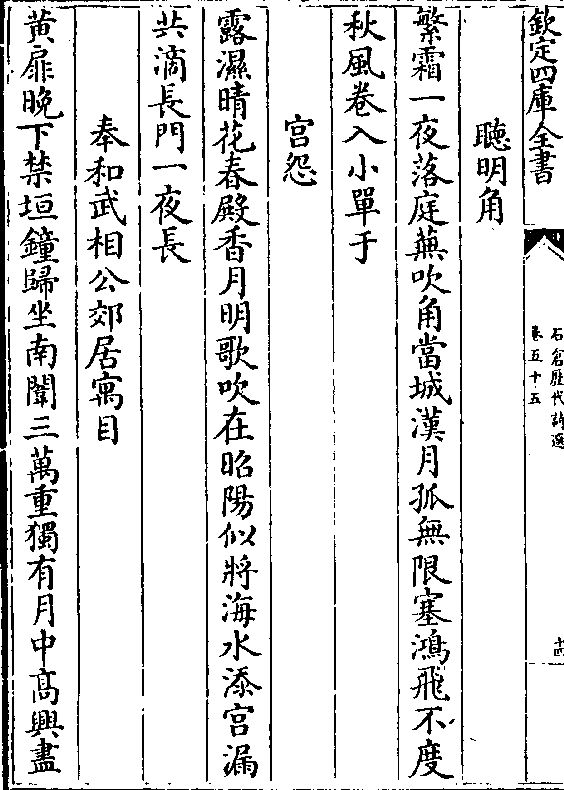 欽定四庫全書
石倉歴代詩選
卷五十五
十四
聽明角
繁霜一夜落庭蕪吹角當城漢月孤無限塞鴻飛不度
秋風卷入小單于
宫怨
露濕晴花春殿香月明歌吹在昭陽似將海水添宫漏
共滴長門一夜長
奉和武相公郊居寓目
黄扉晚下禁垣鐘歸坐南闈三萬重獨有月中髙興盡